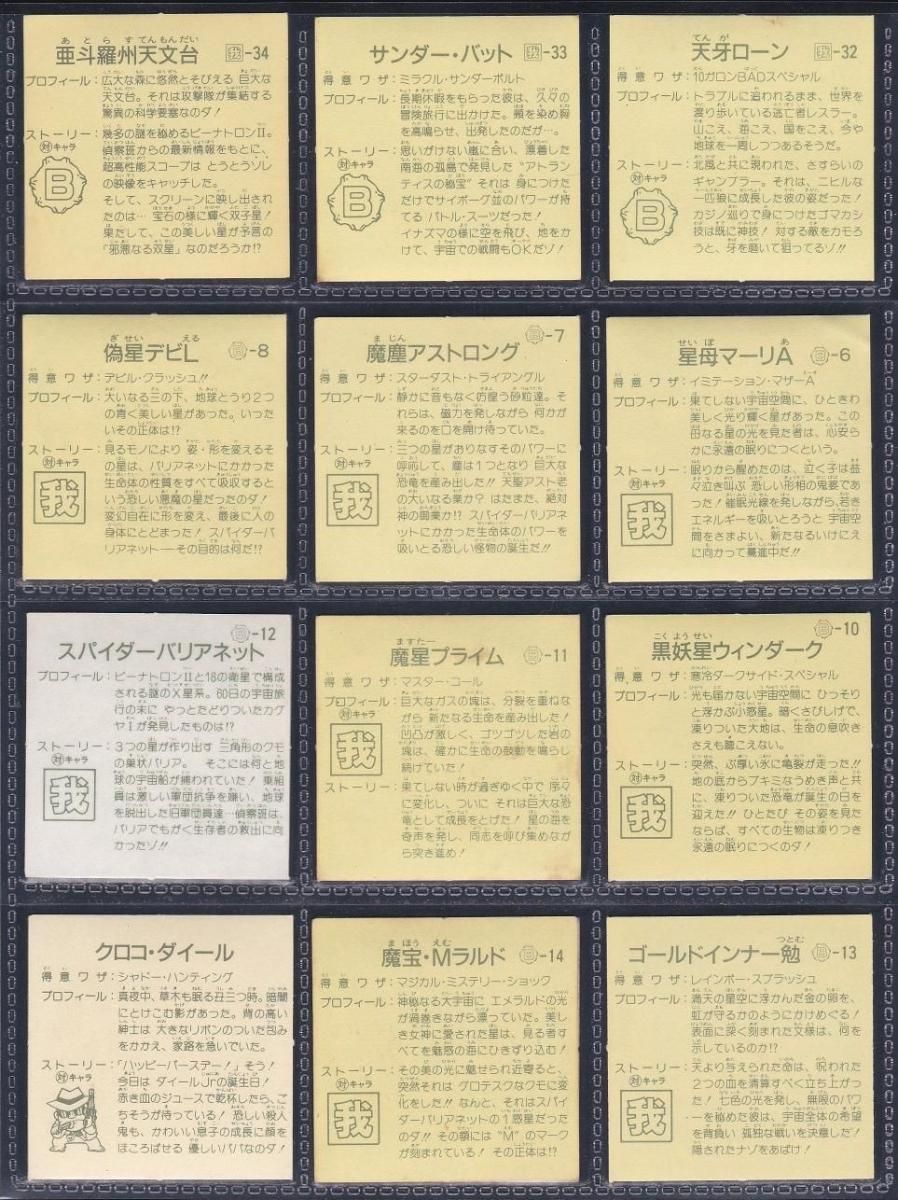 亜斗羅州天文台 -34
プロフィール：広大な森に悠然とそびえる 巨大な
天文台。それは攻撃隊が集結する
驚異の科学要塞なのダ！
ストーリー：幾多の謎を秘めるビーナトロンⅡ。
対キャラ
偵察班からの最新情報をもとに、
超高性能スコープは とうとうソレ
の映像をキャッチした。
そして、スクリーンに映し出され
たのは… 宝石の様に輝く双子星！
果だして、この美しい星が予言の
「邪悪なる双星」なのだろうか!?
B
サンダー・バット -33
得意ワザ：ミラクル・サンダーボルト
プロフィール：長期休暇をもらった彼は、久々の
冒険旅行に出かけた。頬を染め胸
を高鳴らせ、出発したのだが…。
ストーリー：思いがけない嵐に合い、漂着した
対キャラ
南海の孤島で発見した “アトラン
ティスの秘宝” それは 身につけた
だけでサイボーグ並のパワーが持
てる バトル・スーツだった！
イナズマの様に空を飛び、地をか
けて、宇宙での戦闘もOKだゾ！
B
天牙ローン -32
得意ワザ：10ガロンBADスペシャル
プロフィール：トラブルに追われるまま、世界を
渡り歩いている逃亡者レスラー。
山こえ、海こえ、国をこえ、今や
地球を一周しつつあるそうだ。
ストーリー：北風と共に現われた、さすらいの
対キャラ
ギャンブラー。それは、ニヒルな
一匹狼に成長した彼の姿だった！
カジノ巡りで身につけたゴマカシ
技は既に神技！ 対する敵をカモろ
うと、牙を磨いて狙ってるゾ!!
B
偽星デビL -8
得意ワザ：デビル・クラッシュ!!
プロフィール：大いなる三の下、地球とうり２つ
の青く美しい星があった。いった
いその正体は!?
ストーリー：見るモノにより 姿・形を変えるそ
対キャラ
の星は、バリアネットにかかった
生命体の性質をすべて吸収すると
いう恐しい悪魔の星だったのダ！
変幻自在に形を変え、最後に人の
身体にとどまった！ スパイダーバ
リアネット──その目的は何だ!?
我
魔塵アストロング -7
得意ワザ：スターダスト・トライアングル
プロフィール：静かに音もなく彷徨う砂粒達。そ
れらは、磁力を発しながら 何かが
来るのを口を開け待っていた。
ストーリー：三つの星がありなすそのパワーに
対キャラ
呼応して、塵は１つとなり 巨大な
恐竜を産み出した！ 天聖アスト老
の大いなる業か？ はたまた、絶対
神の興業か!? スパイダーバリアネ
ットにかかった生命体のパワーを
吸いとる恐しい怪物の誕生だ!!
我
星母マーリA -6
得意ワザ：イミテーション・マザーA
プロフィール：果てしない宇宙空間に、ひときわ
美しく光り輝く星があった。この
母なる星の光を見た者は、心安ら
かに永遠の眠りにつくという。
ストーリー：眠りから醒めたのは、泣く子は益
対キャラ
々泣き叫ぶ 恐しい形相の鬼婆であ
った！ 催眠光線を発しながら、若き
エネルギーを吸いとろうと 宇宙空
間をさまよい、新たなるいけにえ
に向かって驀進中だ!!
我
スパイダーバリアネット -12
プロフィール：ビーナトロンⅡと18の衛星で構成
される謎のX星系。60日の宇宙旅
行の末に やっとたどりついたカグ
ヤⅠが発見したものは!?
ストーリー：３つの星が作り出す 三角形のクモ
対キャラ
の巣状バリア。 そこには何と地
球の宇宙船が捕われていた！ 乗組
員は激しい軍団抗争を嫌い、地球
を脱出した旧軍団員達…偵察班は、
バリアでもがく生存者の救出に向
かったゾ!!
我
魔星プライム -11
得意ワザ：マスター・コール
プロフィール：巨大なガスの塊は、分裂を重ねな
対キャラ
がら 新たなる生命を産み出した！
凹凸が激しく、ゴツゴツした岩の
塊は、確かに生命の鼓動を鳴らし
続けていた！
ストーリー：果てしない時が過ぎゆく中で 序々
に変化し、ついに それは巨大な恐
竜として成長をとげた！ 星の海を
奇声を発し、同志を呼び集めなが
ら突き進め！
我
黒妖星ウィンダーク -10
得意ワザ：寒冷ダークサイド・スペシャル
プロフィール：光も届かない宇宙空間に ひっそり
と浮かぶ小惑星。暗くさびしげで、
凍りついた大地は、生命の息吹き
さえも聴こえない。
ストーリー：突然、ぶ厚い氷に亀裂が走った!!
対キャラ
地の底からブキミなうめき声と共
に、凍りついた恐竜が誕生の日を
迎えた!! ひとたび その姿を見た
ならば、すべての生物は凍りつき
永遠の眠りにつくのダ！
我
クロコ・ダイール
得意ワザ：シャドー・ハンティング
プロフィール：真夜中、草木も眠る丑三つ時。暗闇
にとけこむ影があった。背の高い
紳士は 大きなリボンのついた包み
をかかえ、家路を急いでいた。
ストーリー：「ハッピーバースデー！」そう！
対キャラ
今日は ダイールJrの誕生日！
赤き血のジュースで乾杯したら、ご
ちそうが待っている！ 恐しい殺人
鬼も、かわいい息子の成長に顔を
ほころばせる 優しいパパなのダ！
魔宝・Mラルド -14
得意ワザ：マジカル・ミステリー・ショック
プロフィール：神秘なる大宇宙に エメラルドの光
が渦巻きながら漂っていた。美し
き女神に愛された星は、見る者す
べてを魅惑の海にひきずり込む！
ストーリー：その美の光に魅せられ近寄ると、
対キャラ
突然それは グロテスクなクモに変
化をした!! なんと、それはスパイ
ダーバリアネットの１惑星だった
のダ!! その額には “M” のマーク
が刻まれている！ その正体は!?
我
ゴールドインナー勉 -13
得意ワザ：レインボー・スプラッシュ
プロフィール：満天の星空に浮かんだ金の卵を、
虹が守るかのようにかけめぐる！
表面に深く刻まれた文様は、何を
示しているのか!?
ストーリー：天より与えられた命は、呪われた
対キャラ
２つの血を清算すべく立ち上がっ
た！ 七色の光を発し、無限のパワ
ーを秘めた彼は、宇宙全体の希望
を背負い 孤独な戦いを決意した！
隠されたナゾをあばけ！
我